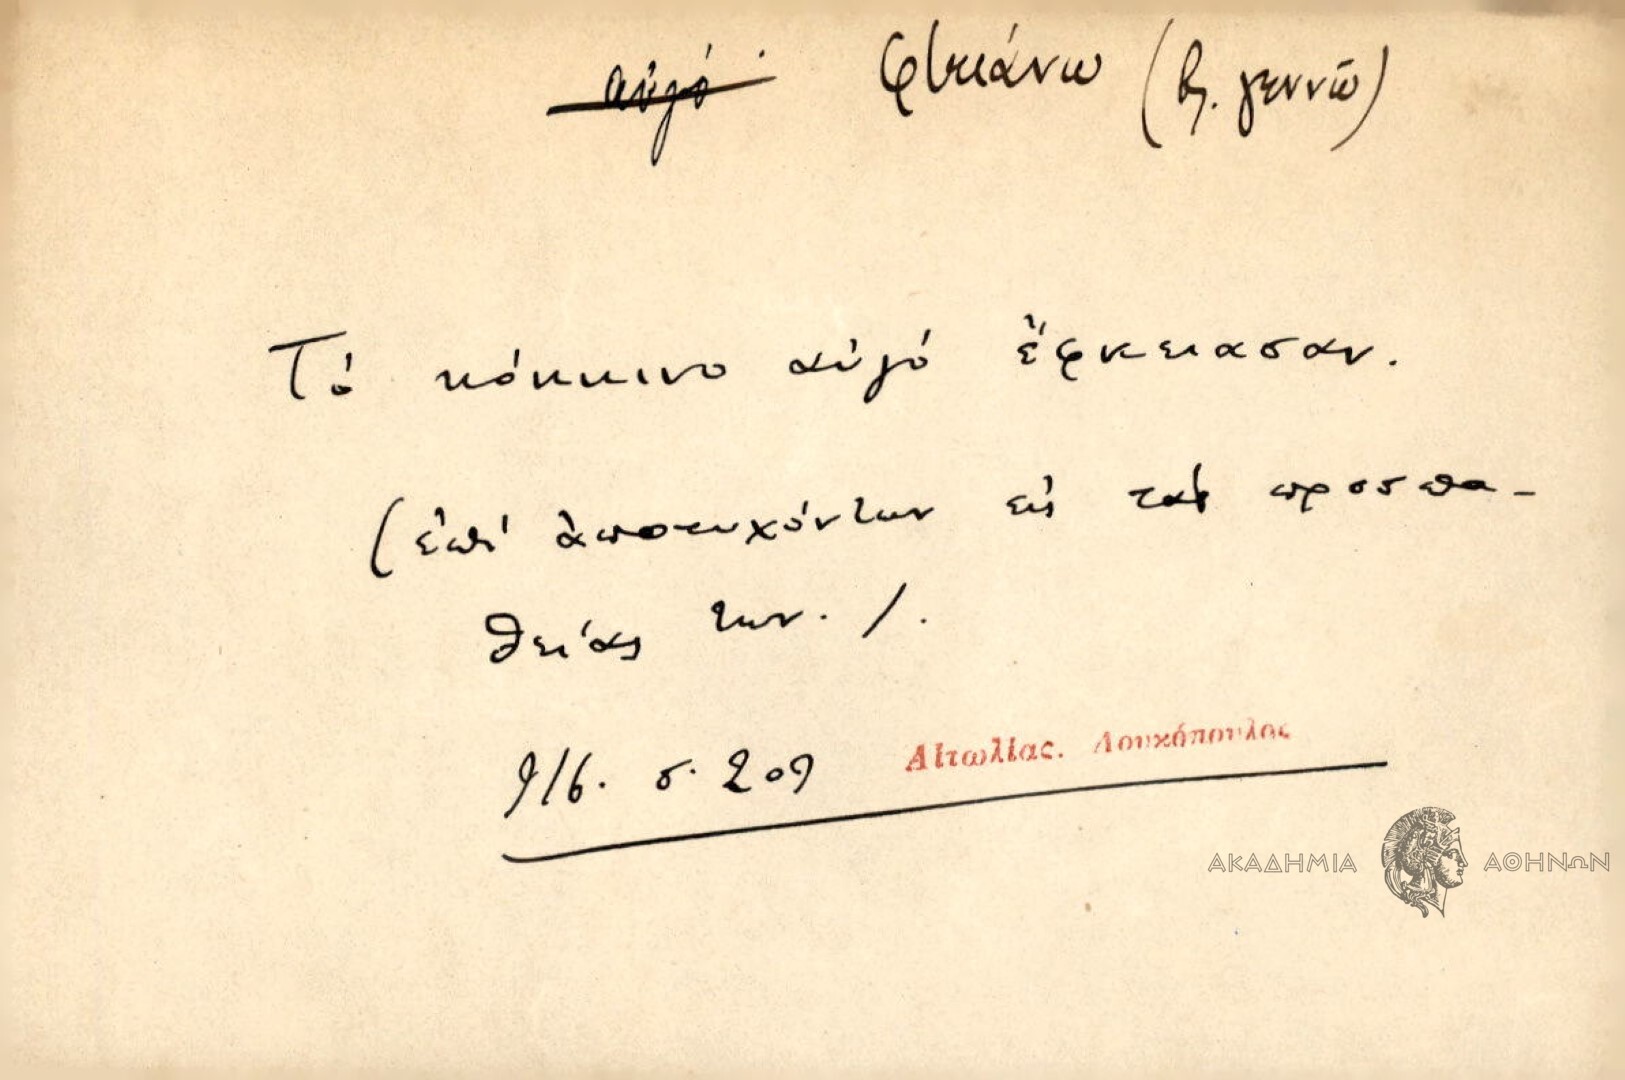 αὐγό φκειάνω (βλ. γεννῶ)
Τό κόκκινο αὐγό ἔφκειασαν.
(ἐπί ἀποτυχόντων εἰς τάς προσπα-
θείας των. /.
916. σ. 209 Αἰτωλίας. Λουκόπουλος
ΑΚΑΔΗΜΙΑ ΑΘΗΝΩΝ